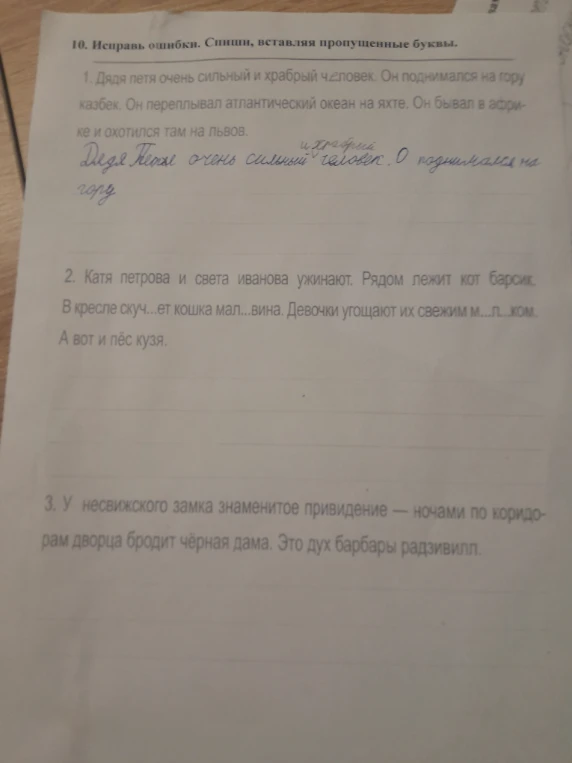 10. Исправь ошибки. Спиши, вставляя пропущенные буквы.
1. Дядя петя очень сильный и храбрый человек. Он поднимался на гору
казбек. Он переплывал атлантический океан на яхте. Он бывал в афри-
ке и охотился там на львов.
и храбрый
Дядя очень сильный человек. О поднимался на
гору
2. Катя петрова и света иванова ужинают. Рядом лежит кот барсик.
В кресле скуч...ет кошка мал...вина. Девочки угощают их свежим м...л...ком.
А вот и пёс кузя.
3. У несвижского замка знаменитое привидение — ночами по коридо-
рам дворца бродит чёрная дама. Это дух барбары радзивилл.